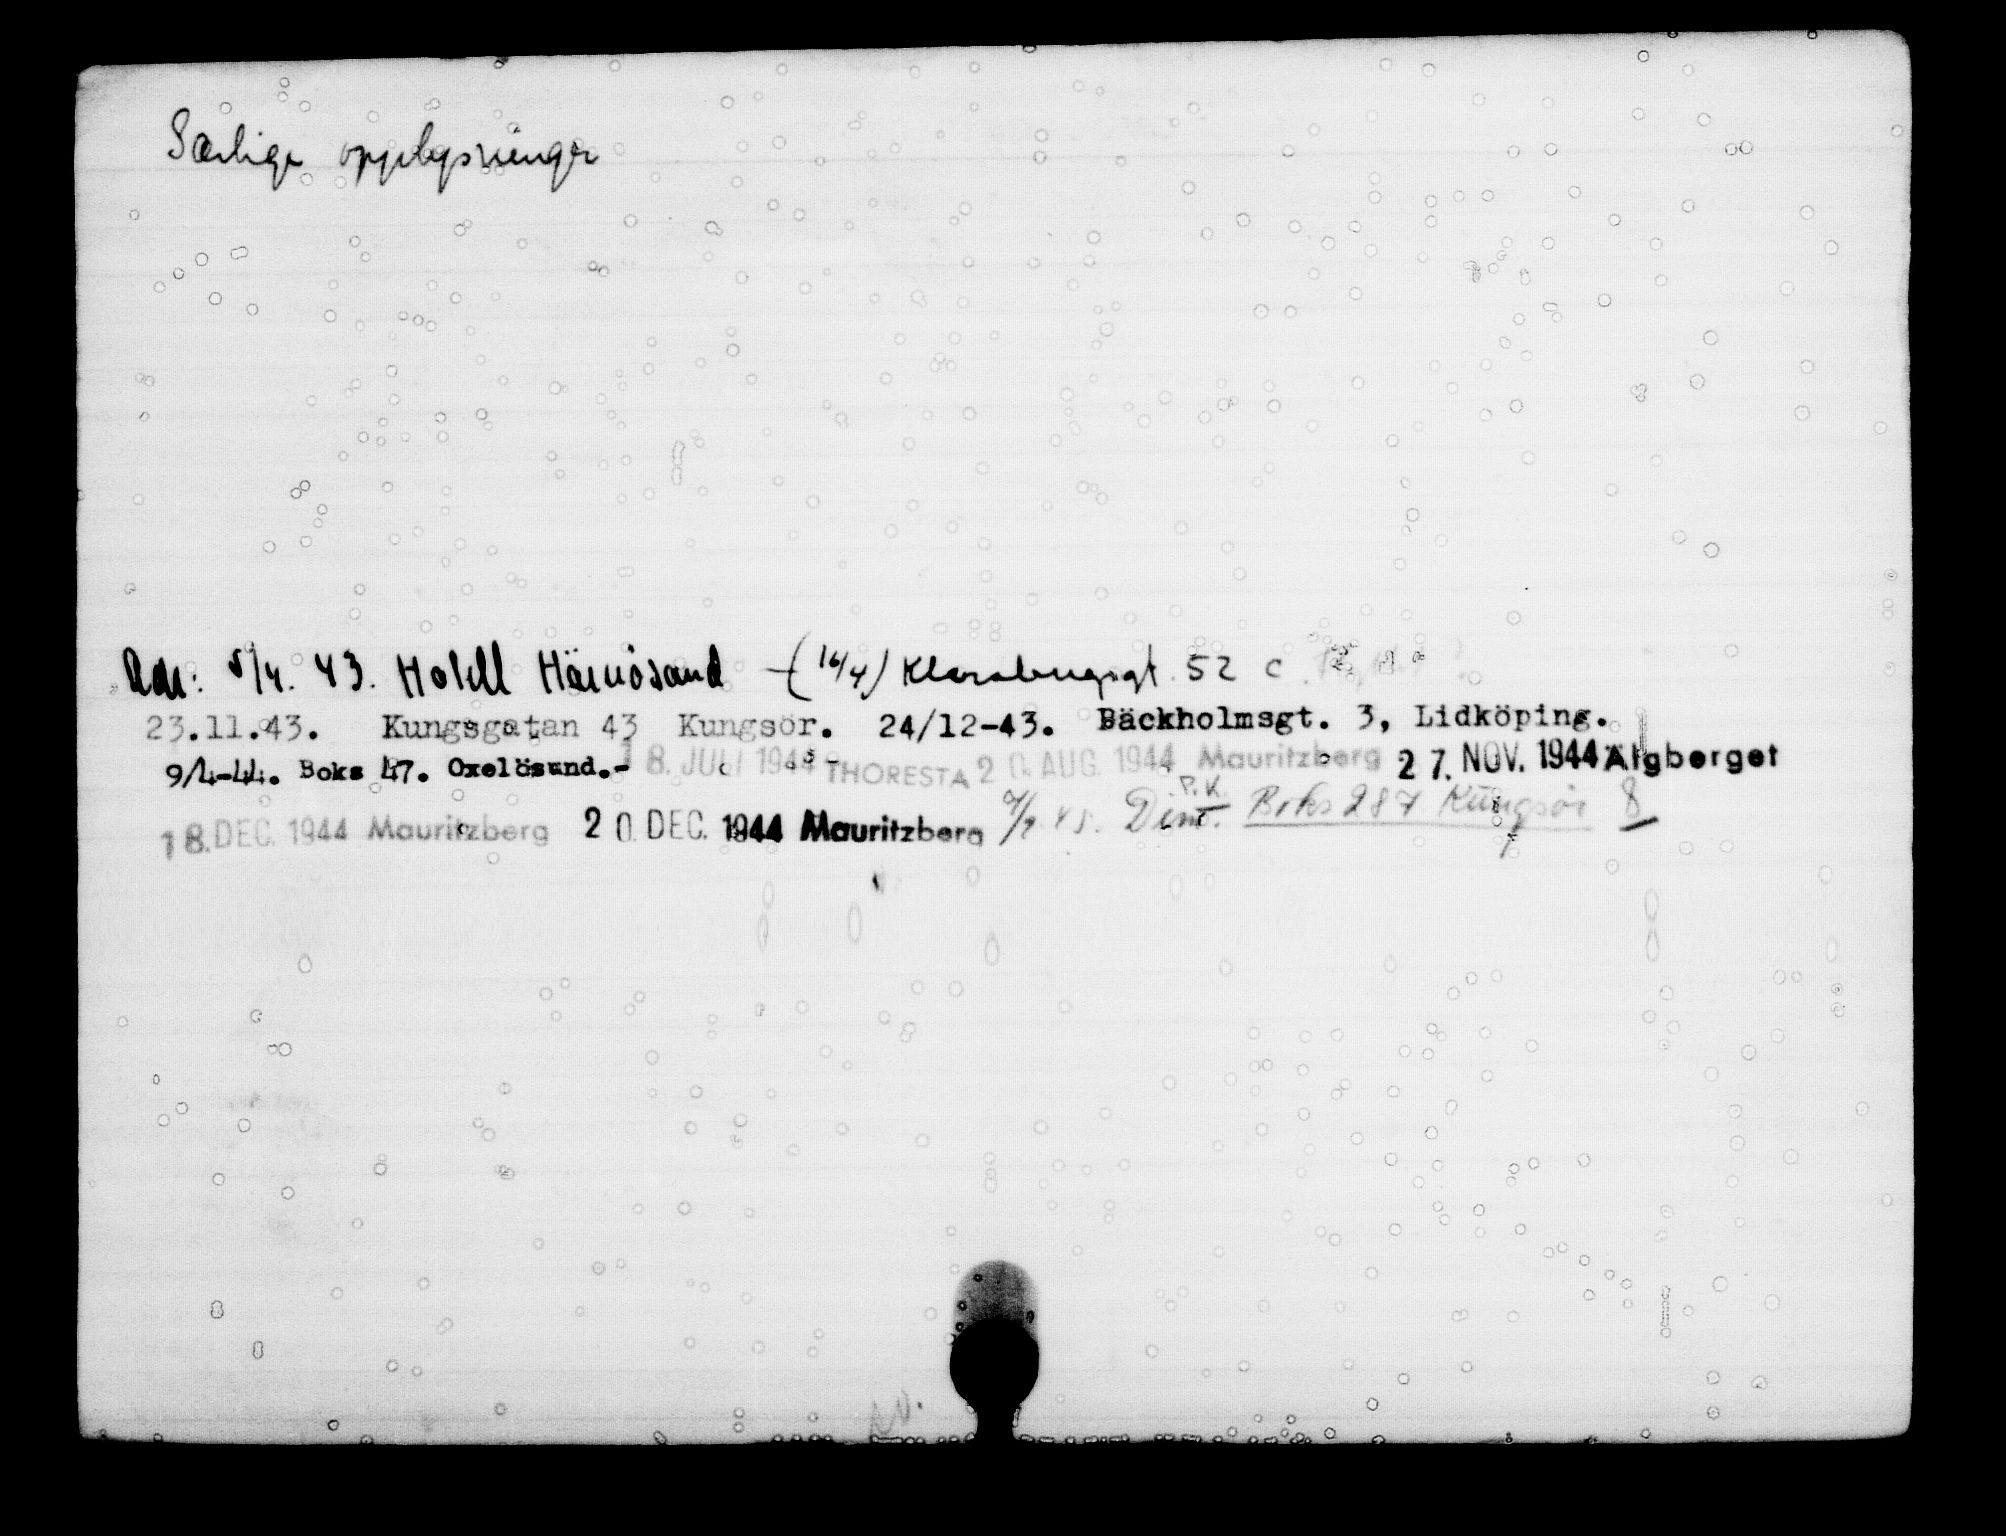 Særlige opplysninger
Adr: 5/4. 43. Hotell Härnösand - (16/4) Klarabergsgt. 52 C
23.11.43. Kungsgatan 43 Kungsör. 24/12-43. Bäckholmsgt. 3, Lidköping.
9/4-44. Boks 47. Oxelösund.- 18. JULI 1944 THORESTA 20. AUG. 1944 Mauritzberg 27. NOV. 1944 Älgberget
18. DEC. 1944 Mauritzberg 20. DEC. 1944 Mauritzberg 45. Dim. P.K. Boks 287 Kungsör 8